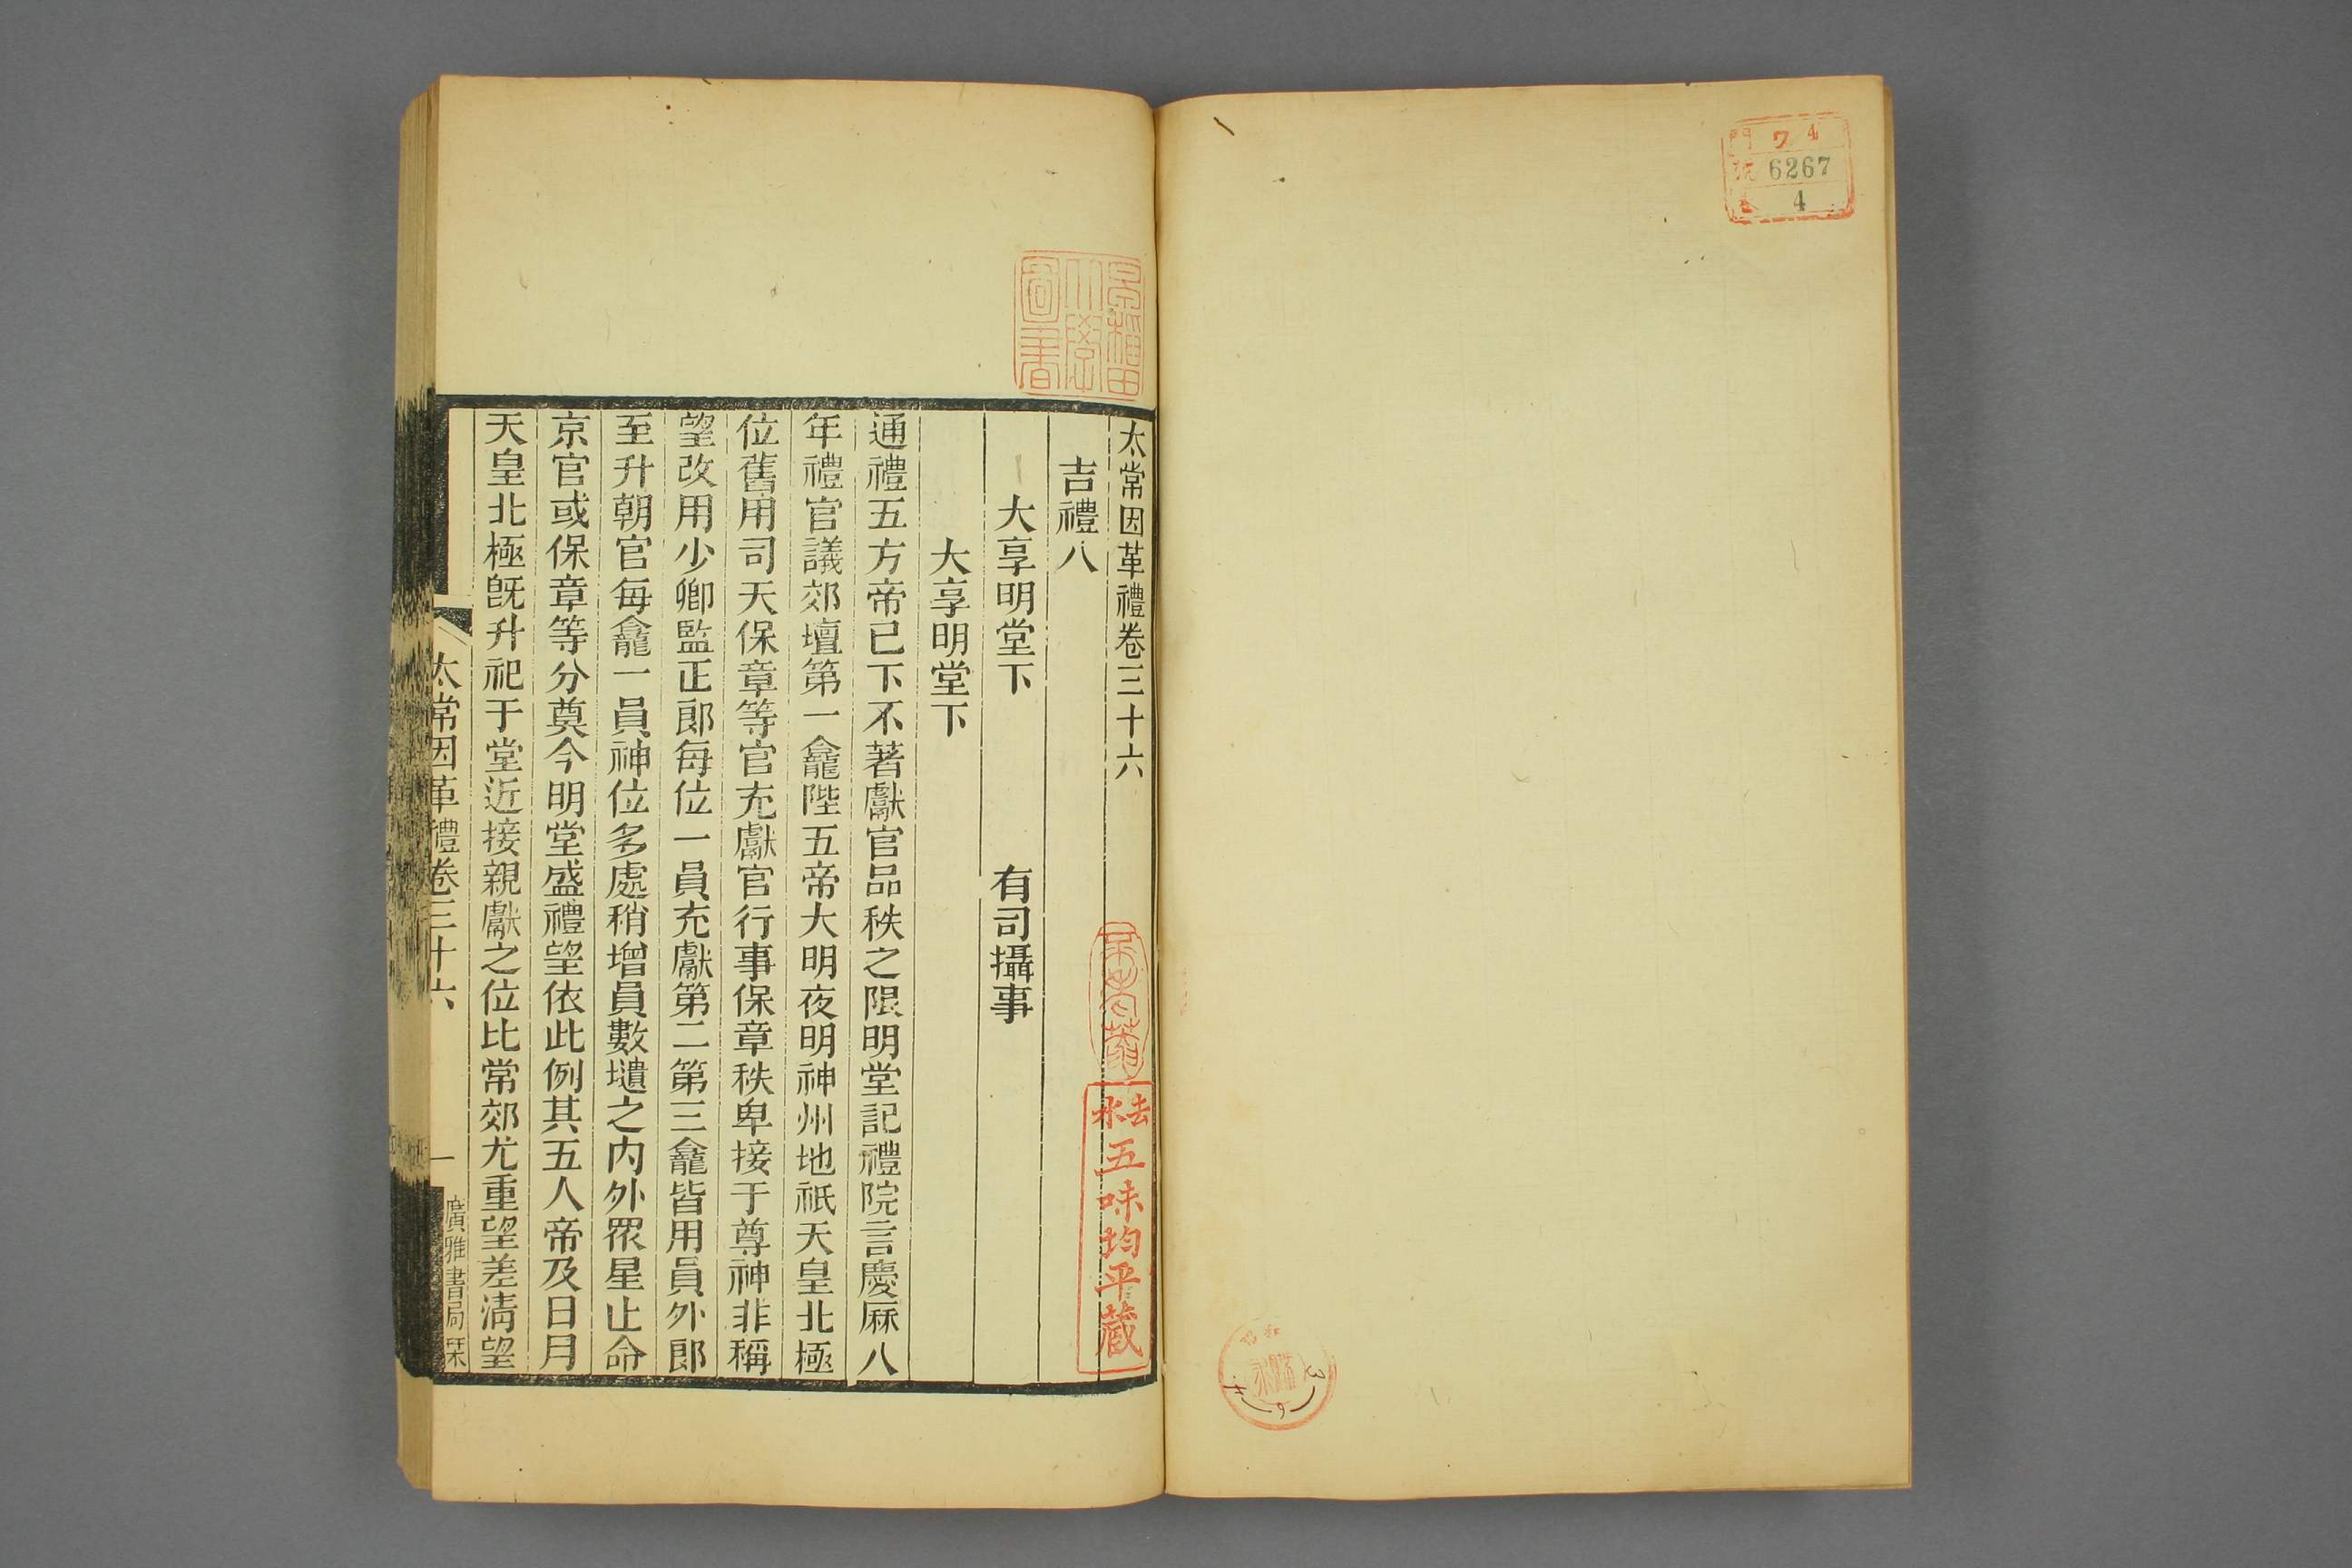 門 ワ 4
號 6267
4
早稲田
大學
圖書
太常因革禮卷三十六
吉禮八
大享明堂下 有司攝事
大享明堂下
通禮五方帝已下不著獻官品秩之限明堂記禮院言慶厤八
年禮官議郊壇第一龕陛五帝大明夜明神州地祇天皇北極
位舊用司天保章等官充獻官行事保章秩卑接于尊神非稱
望改用少卿監正郎每位一員充獻第二第三龕皆用員外郎
至升朝官每龕一員神位多處稍增員數壝之内外眾星止命
京官或保章等分奠今明堂盛禮望依此例其五人帝及日月
天皇北極旣升祀于堂近接親獻之位比常郊尤重望差清望
太常因革禮卷三十六
一
廣雅書局栞
去水
五味均平蔵